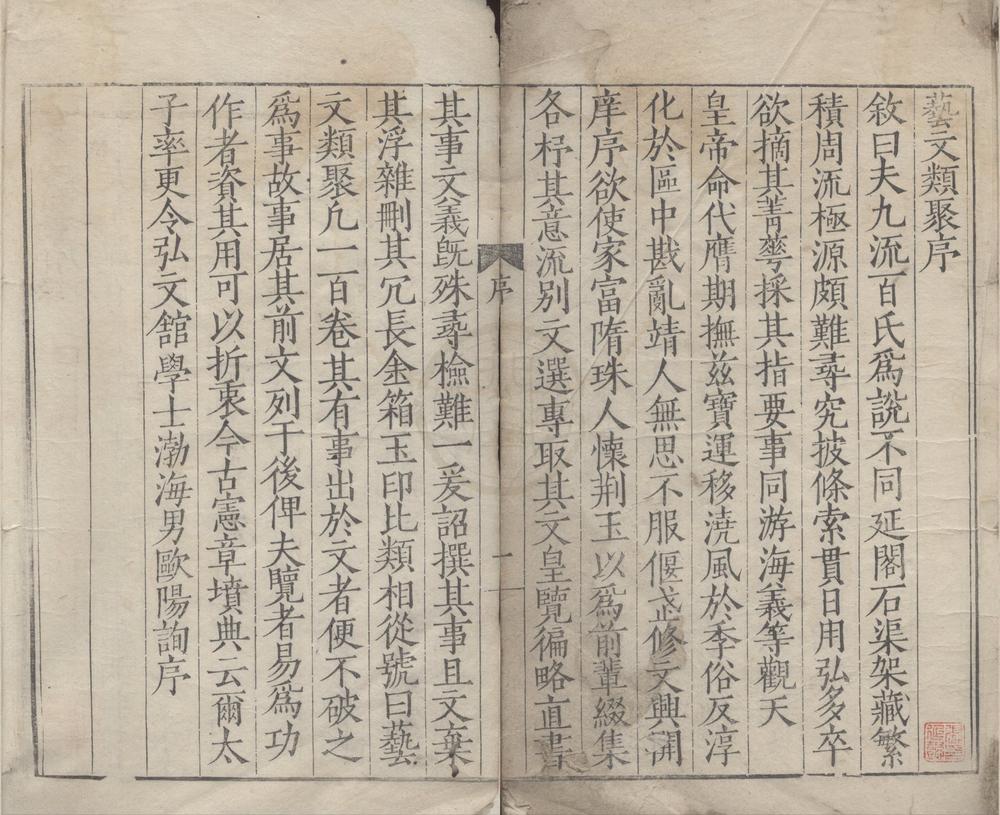 藝文類聚序
敘曰夫九流百氏爲說不同延閣石渠架藏繁
積周流極源頗難尋究披條索貫日用弘多卒
欲摘其菁華採其指要事同游海義等觀天
皇帝命代膺期撫茲寶運移澆風於季俗反淳
化於區中戡亂靖人無思不服偃武修文興開
庠序欲使家富隋珠人懷荆玉以爲前輩綴集
各杼其意流别文選專取其文皇覽徧略直書
序
二
其事文義旣殊尋檢難一爰詔撰其事且文棄
其浮雜刪其冗長金箱玉印比類相從號曰藝
文類聚凡一百卷其有事出於文者便不破之
爲事故事居其前文列于後俾夫覽者易爲功
作者資其用可以折衷今古憲章墳典云爾太
子率更令弘文舘學士渤海男歐陽詢序